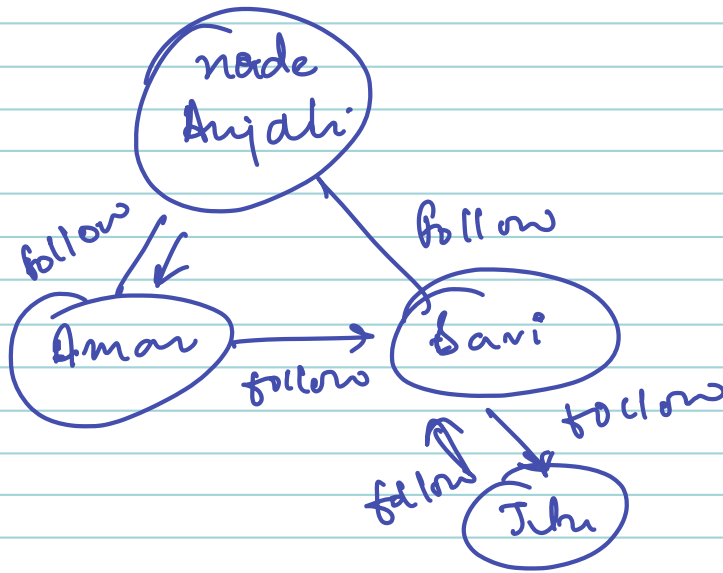 node
Anjali
follow
follow
Aman
follow
Savi
follow
follow